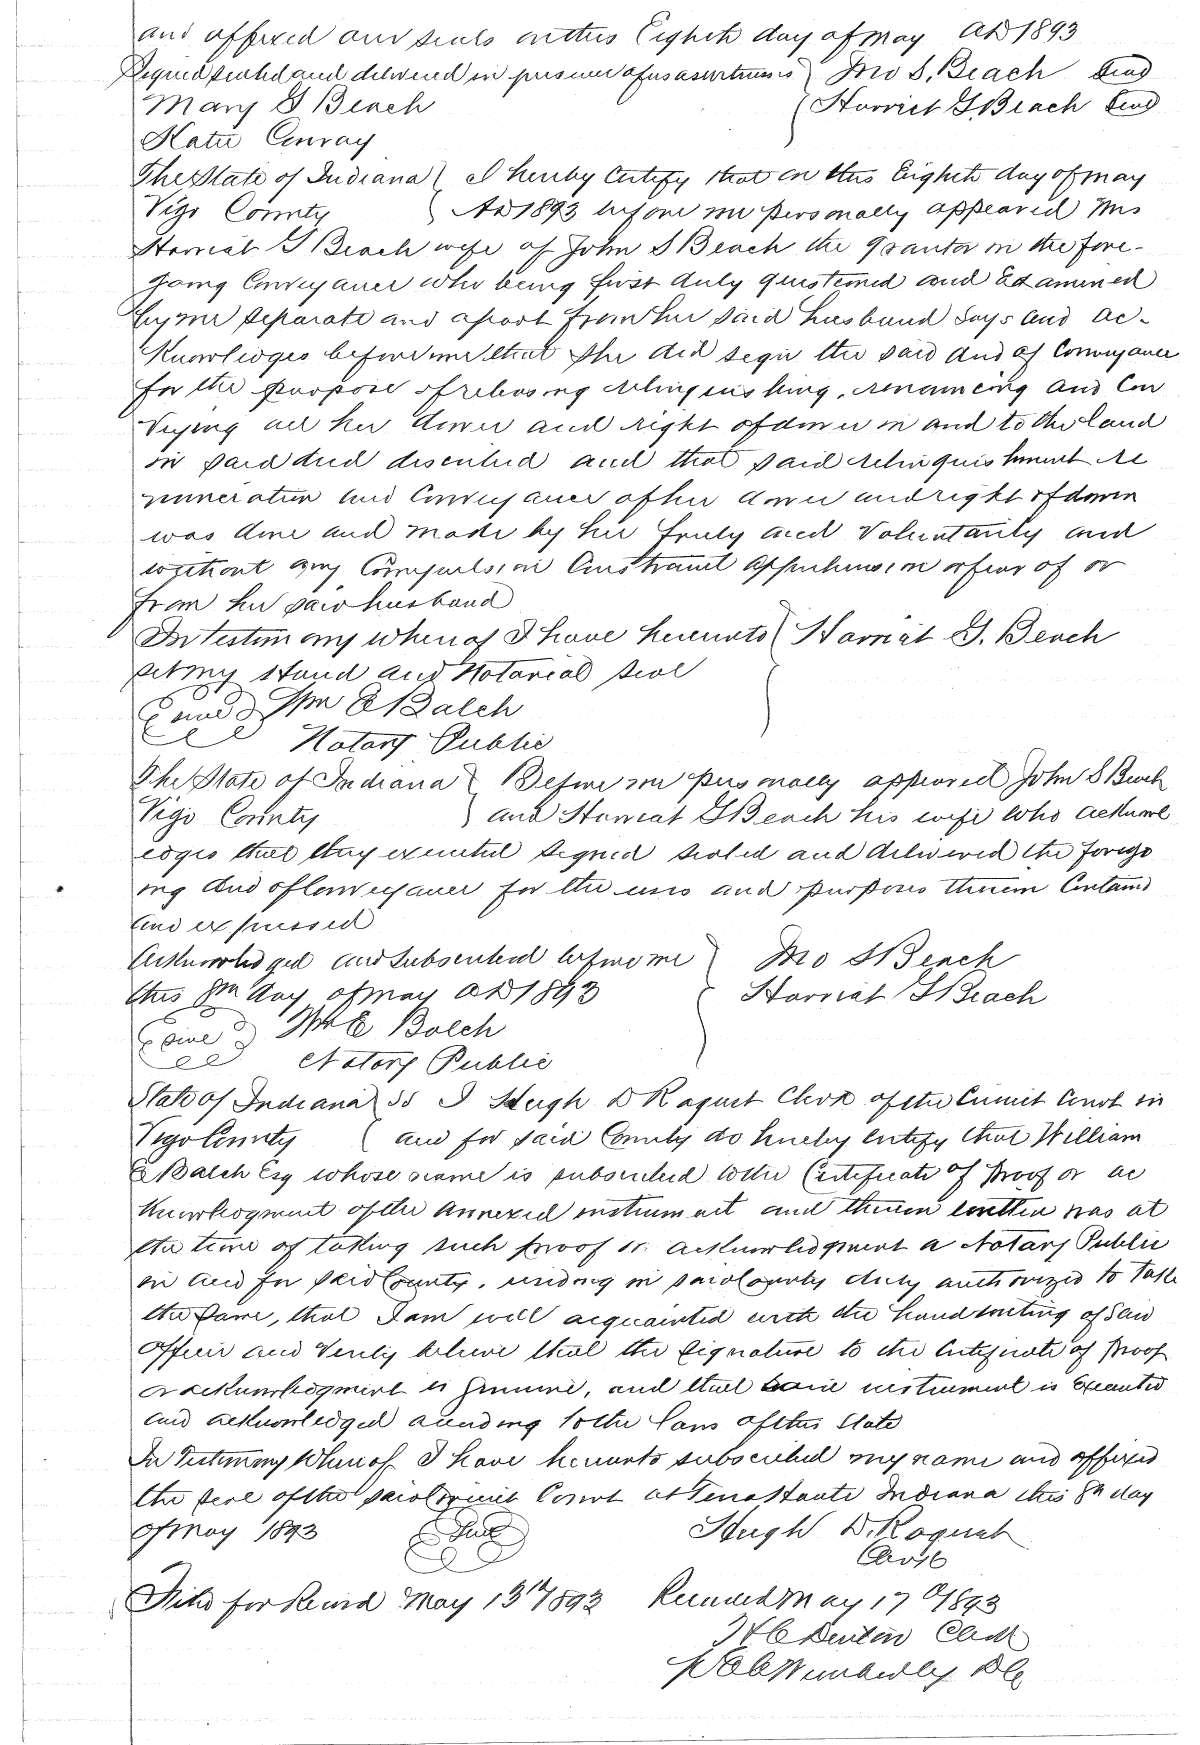 and affixed our seals on this Eighth day of May AD 1893
Signed sealed and delivered in presence of us as witnesses } Jno S. Beach Seal
Mary G Beach { Harriet G. Beach Seal
Katie Conray
The State of Indiana } I hereby Certify that on this Eighth day of May
Vigo County } AD 1893 before me personally appeared Mrs
Harriet G Beach wife of John S Beach the grantor in the fore-
going Conveyance who being first duly questioned and Examined
by me separate and apart from her said husband says and ac-
Knowledges before me that she did sign the said deed of Conveyance
for the purpose of releasing relinquishing, renouncing and Con
Veying all her dower and right of dower in and to the land
in said deed described and that said relinquishment re
nunciation and Conveyance of her dower and right of dower
was done and made by her freely and Voluntarily and
without any Compulsion Constraint apprehension or fear of or
from her said husband
In testimony whereof I have hereunto { Harriet G. Beach
set my Hand and Notarial Seal
Seal Wm E Balch
Notary Public
The State of Indiana } Before me personally appeared John S Beach
Vigo County } and Harriet G Beach his wife who acknowl
edges that they executed signed sealed and delivered the forego
ing deed of Conveyance for the uses and purposes therein Contained
and expressed
Acknowledged and subscribed before me } Jno S Beach
this 8th day of May AD 1893 { Harriet G Beach
Seal Wm E Balch
Notary Public
State of Indiana } SS I Hugh D Roquet Clerk of the Circuit Court in
Vigo County { and for said County do hereby Certify that William
E Balch Esq whose name is subscribed to the Certificate of Proof or ac
knowledgment of the annexed instrument and therein written was at
the time of taking such proof or acknowledgment a Notary Public
in and for said County, residing in said County duly authorized to take
the same, that I am well acquainted with the handwriting of said
officer and Verily believe that the signature to the Certificate of Proof
or acknowledgment is genuine, and that said instrument is Executed
and acknowledged according to the laws of this State
In Testimony Whereof I have hereunto subscribed my name and affixed
the seal of the said Circuit Court at Terre Haute Indiana this 8th day
of May 1893 Seal Hugh D. Roquet
Clerk
Filed for Record May 13th 1893 Recorded May 17th 1893
Denton Clerk
Wimberly DC